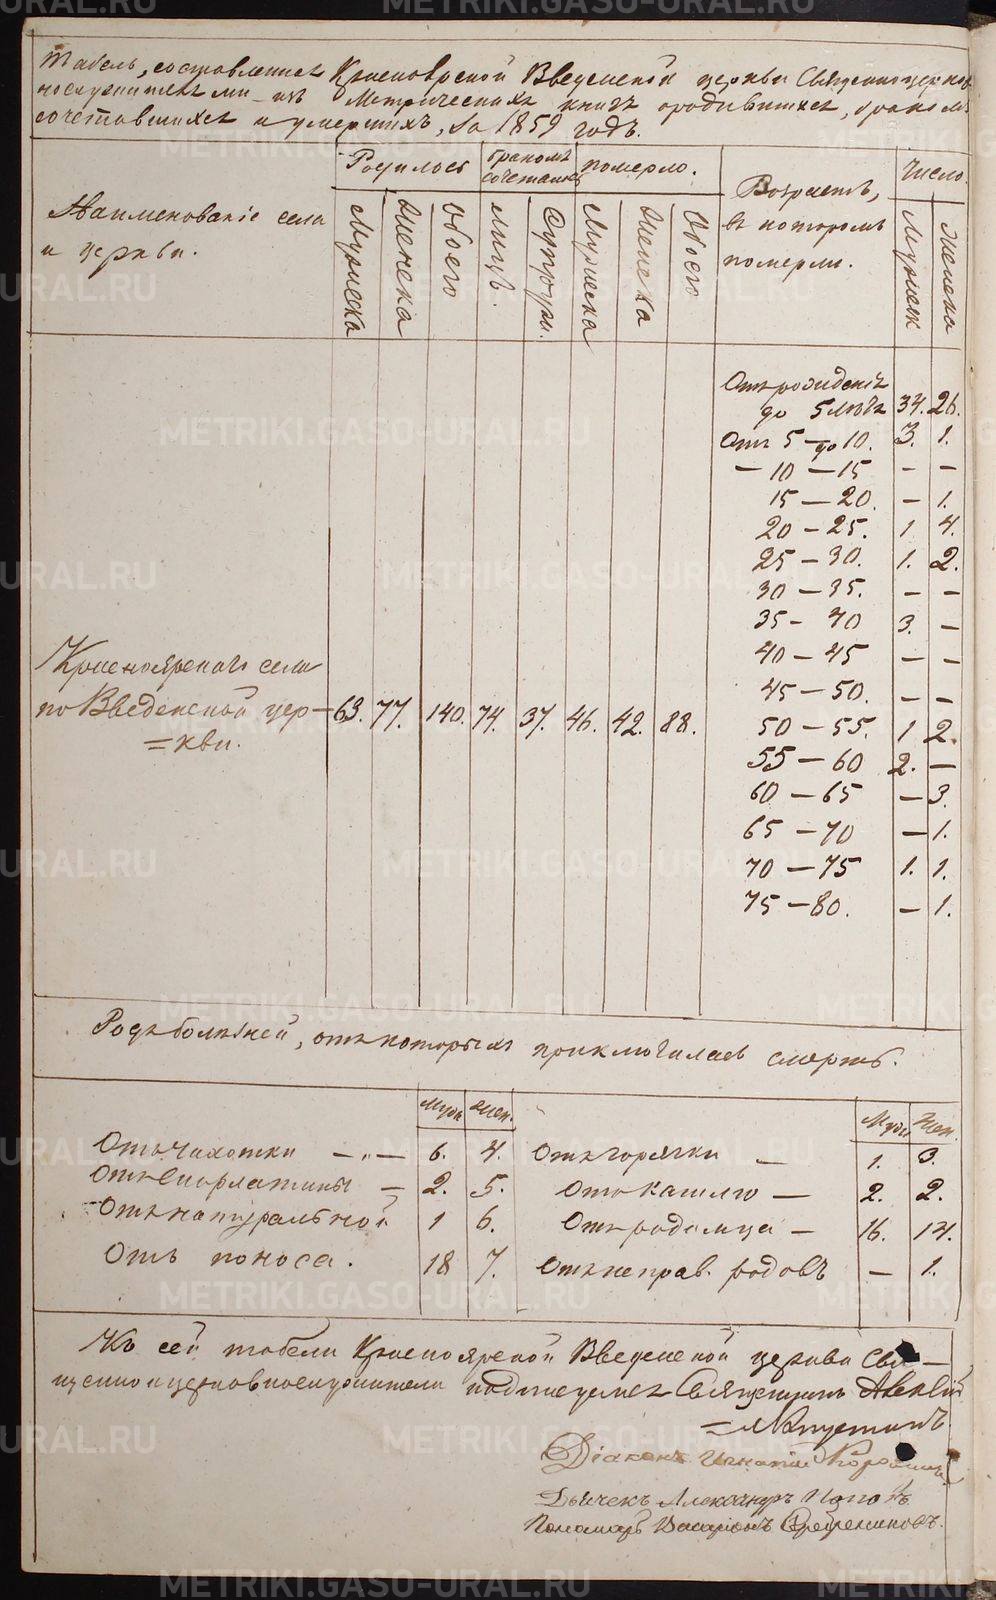 Табель, составленная Красноярской Введенской церкви Священноцерков-
нослужителями из Метрических книг о родившихся, браком
сочетавшихся и умерших, за 1859 годъ.
Наименование села
и церкви.
Родилось
Мужеска
Женска
Обоего
Бракомъ
сочеталось
Лицъ.
Супруж.
Померло.
Мужеска
Женска
Обоего
Возрастъ,
въ которомъ
померли.
Число
Мужеск
Женска
Отъ рождения
до 5 летъ 34. 26.
Отъ 5 — до 10. 3. 1.
— 10 — 15 — —
15 — 20. — 1.
20 — 25. 1 4.
25 — 30. 1. 2.
30 — 35. — —
35 — 40 3. —
40 — 45 — —
45 — 50. — —
50 — 55. 1 2.
55 — 60 2. —
60 — 65 — 3.
65 — 70 — 1.
70 — 75 1. 1.
75 — 80. — 1.
Красноярскаго села
по Введенской цер— 63. 77. 140. 74. 37. 46. 42. 88.
=кви.
Родъ болѣзней, отъ которыхъ приключилась смерть.
Муж. Жен. Муж. Жен.
Отъ чахотки — „ — 6. 4. Отъ горячки — 1. 3.
Отъ скарлатины — 2. 5. Отъ кашлю — 2. 2.
Отъ натуральной 1 6. Отъ родимца — 16. 14.
Отъ поноса. 18 7. Отъ неправ. родовъ — 1.
Къ сей табели Красноярской Введенской церкви Свя—
щенно и церковнослужители подписуемся Священникъ
Діаконъ Игнатій
Дьячекъ Александръ Поповъ
Пономарь Серебренниковъ.
METRIKI.GASO-URAL.RU